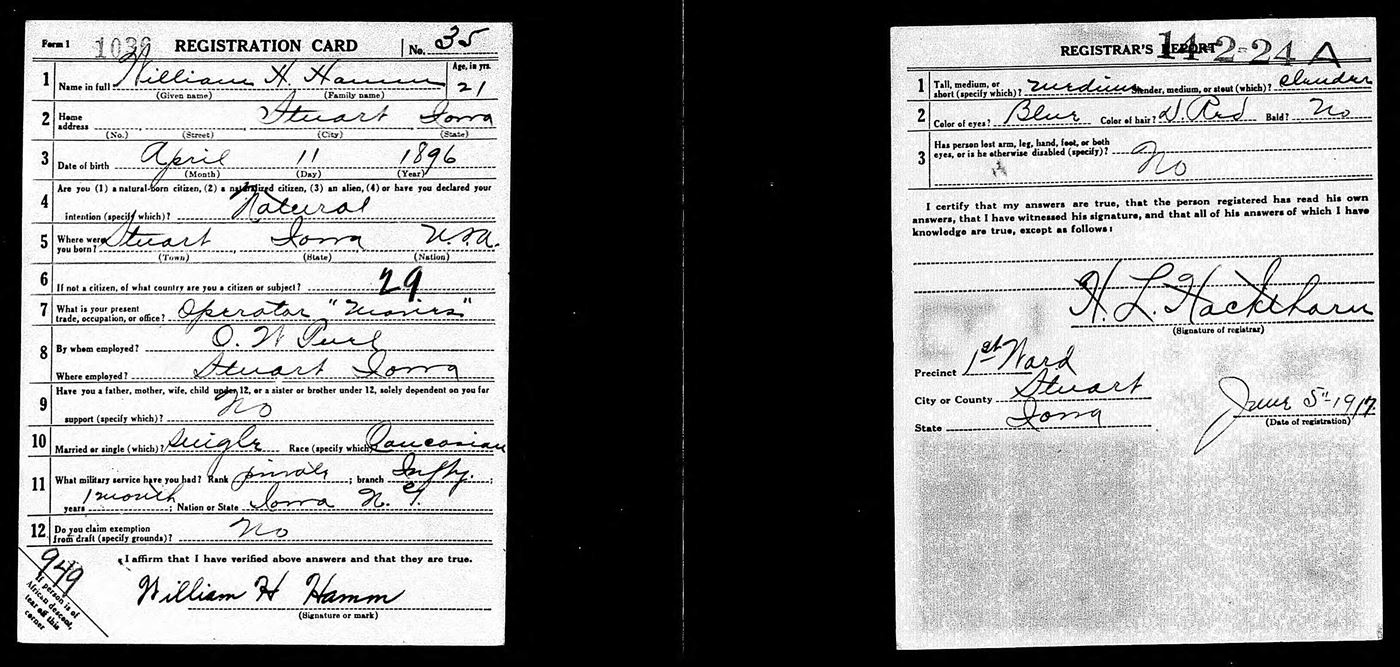 Form 1 1036 REGISTRATION CARD No. 35
1 Name in full William H. Hamm Age, in yrs. 21
(Given name) (Family name)
2 Home address Stuart Iowa
(No.) (Street) (City) (State)
3 Date of birth April 11 1896
(Month) (Day) (Year)
4 Are you (1) a natural-born citizen, (2) a naturalized citizen, (3) an alien, (4) or have you declared your
intention (specify which)? Natural
5 Where were you born? Stuart Iowa U.S.A.
(Town) (State) (Nation)
6 If not a citizen, of what country are you a citizen or subject? 29
7 What is your present trade, occupation, or office? Operator "Movies"
8 By whom employed? O. W. Purl
Where employed? Stuart Iowa
9 Have you a father, mother, wife, child under 12, or a sister or brother under 12, solely dependent on you for
support (specify which)? No
10 Married or single (which)? Single Race (specify which)? Caucasian
11 What military service have you had? Rank private ; branch Infty. ;
years 1 month ; Nation or State Iowa N. G.
12 Do you claim exemption from draft (specify grounds)? No
I affirm that I have verified above answers and that they are true.
949
If person is of
African descent,
tear off this
corner
William H Hamm
(Signature or mark)
REGISTRAR'S REPORT 14-2-24 A
1 Tall, medium, or short (specify which)? medium Slender, medium, or stout (which)? slender
2 Color of eyes? Blue Color of hair? D. Red Bald? No
3 Has person lost arm, leg, hand, foot, or both
eyes, or is he otherwise disabled (specify)? No
I certify that my answers are true, that the person registered has read his own
answers, that I have witnessed his signature, and that all of his answers of which I have
knowledge are true, except as follows:
H. L. Hackthorn
(Signature of registrar)
Precinct 1st Ward
City or County Stuart
State Iowa
June 5" 1917.
(Date of registration)